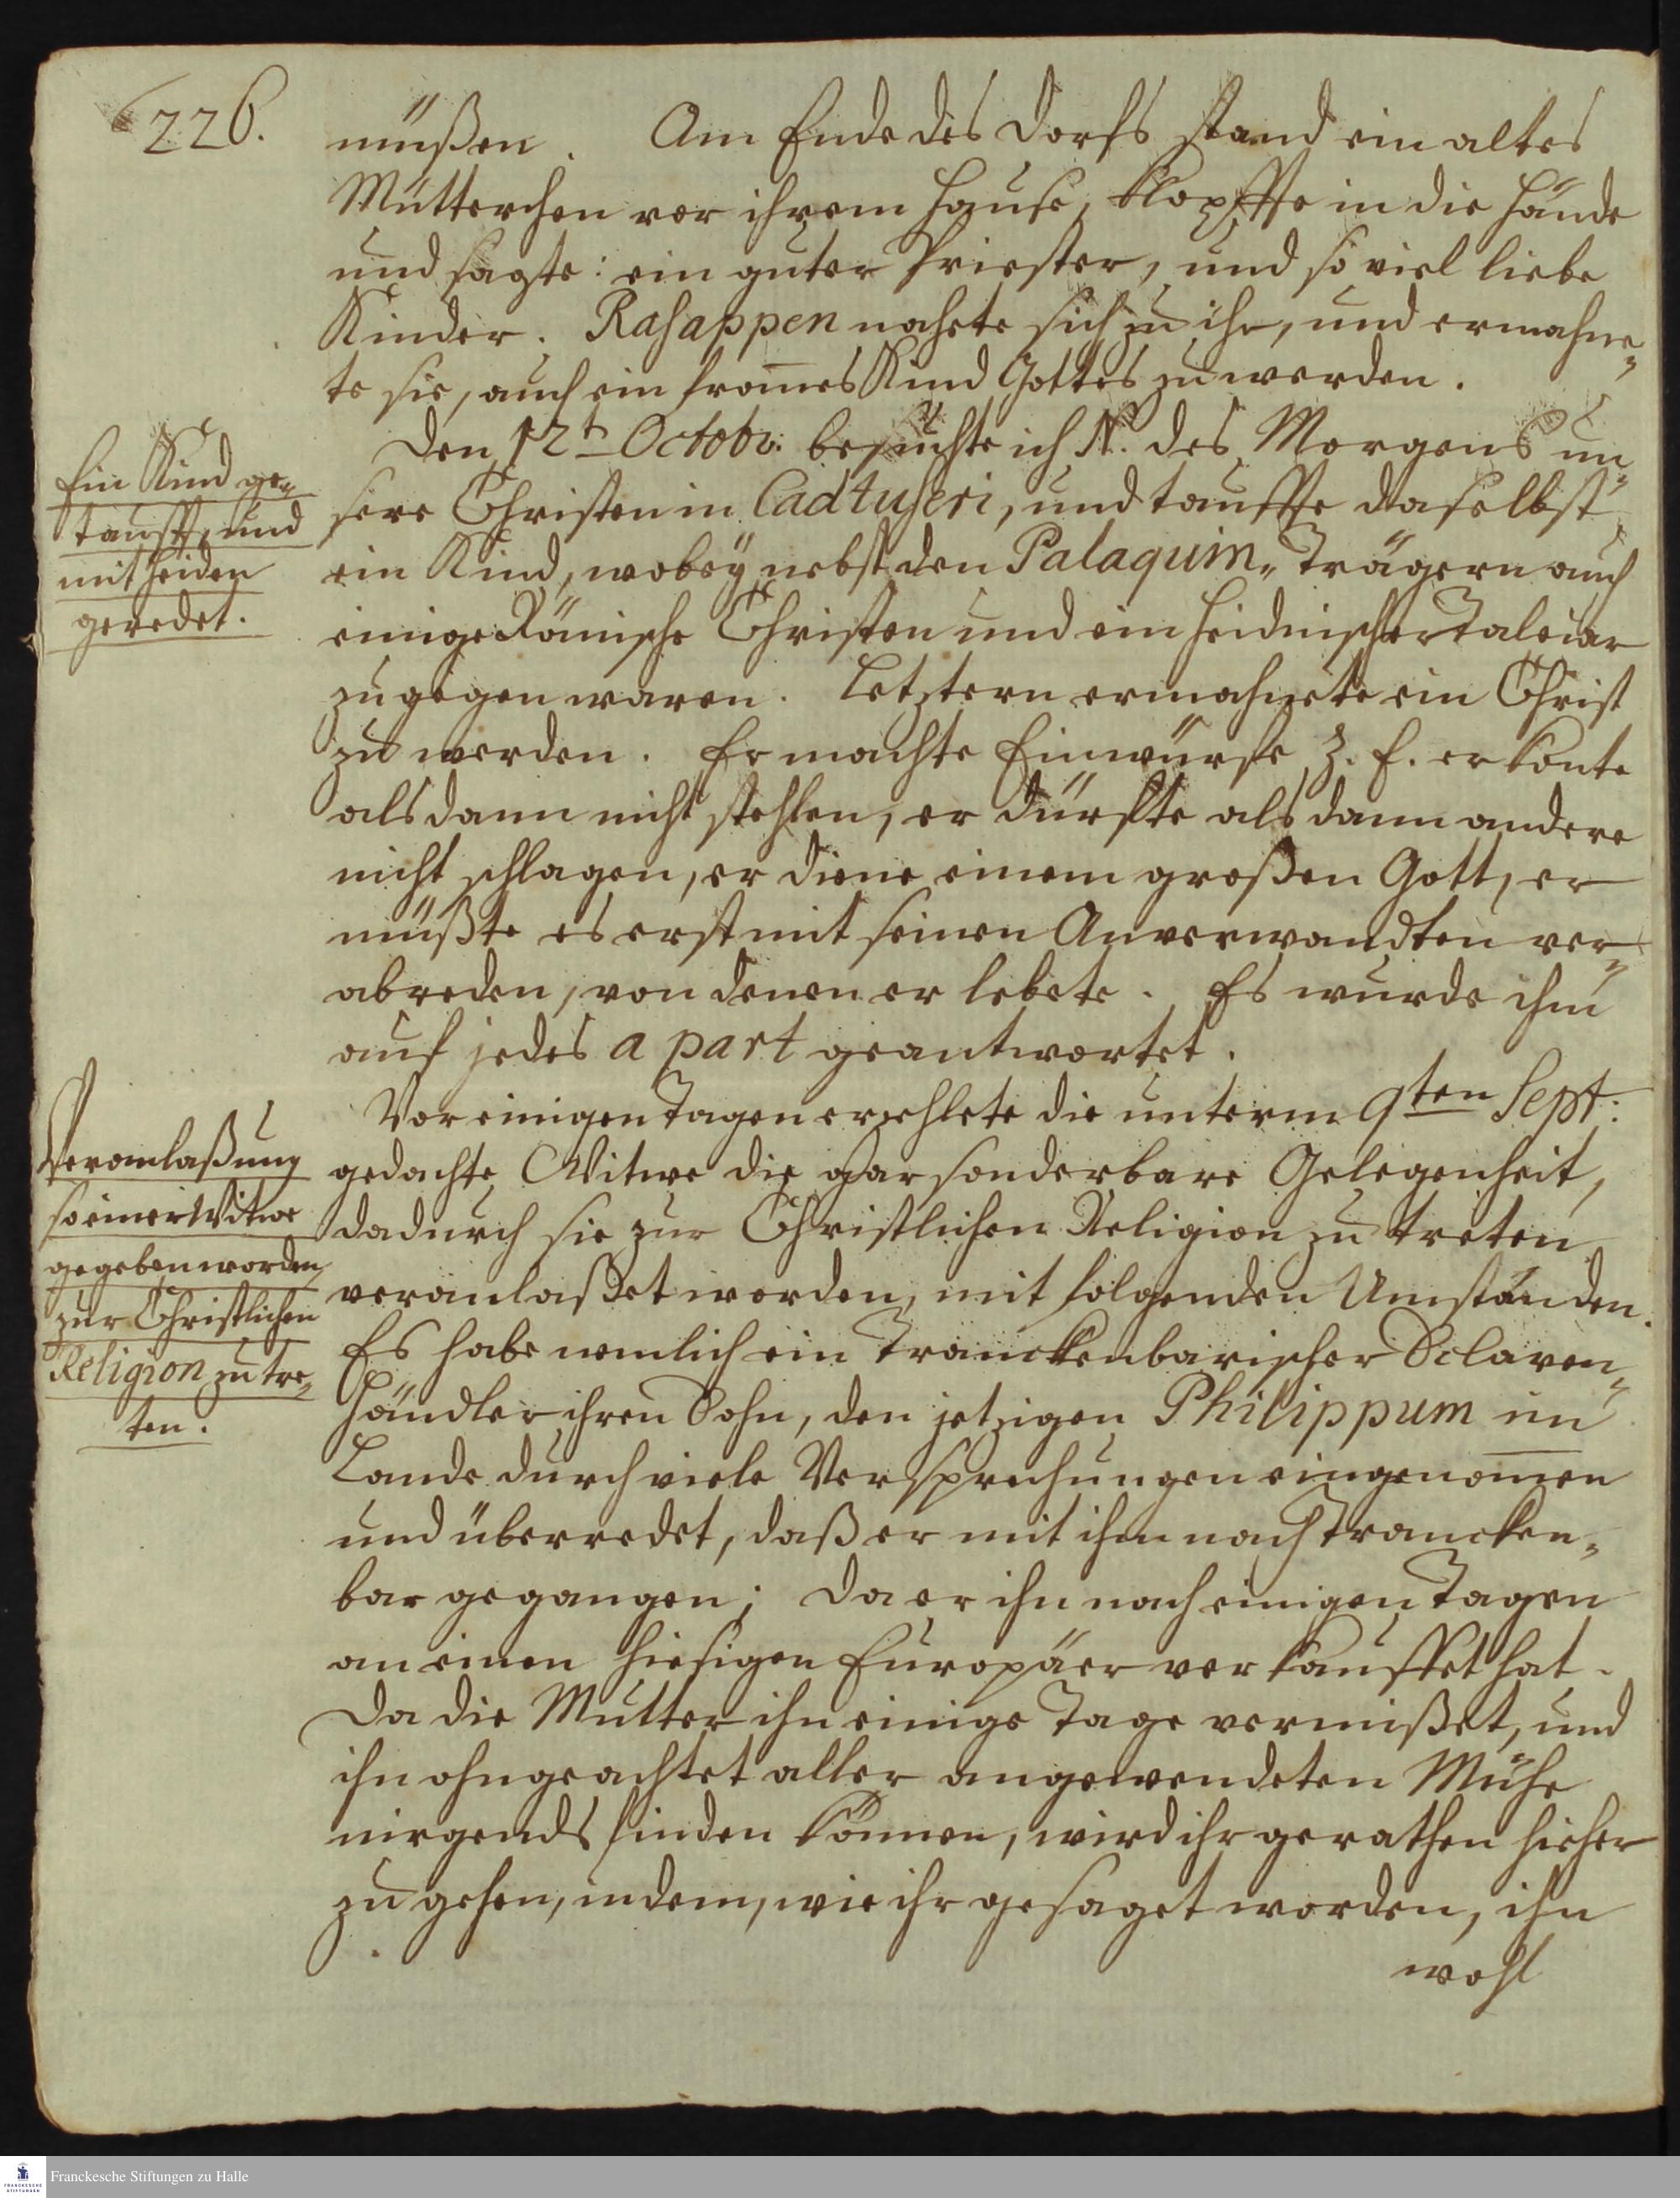 226.
müßen. Am Ende des Dorfs stand ein altes
Mütterchen vor ihrem Hause, klopffte in die Hände
und sagte: ein guter Priester, und so viel liebe
Kinder. Rasappen nahete sich zu ihr, und ermahne„
te sie, auch ein from̄es Kind Gottes zu werden.
Ein Kind ge„
taufft, und
mit Heiden
geredet.
Den 12t Octobr. besuchte ich N. des Morgens un„
sere Christen in Cadtuseri, und tauffte daselbst
ein Kind, wobey nebst den Palaquim„Trägern auch
einige Römische Christen und ein Heidnischer Taleiar
zugegen waren. Letztern ermahnete ein Christ
zu werden. Er machte Einwürfe z. E. er konte
alsdann nicht stehlen, er dürffte alsdann andere
nicht schlagen, er diene einem großen Gott, er
müßte es erst mit seinen Anverwandten ver„
abreden, von denen er lebete. Es wurde ihm
auf jedes a part geantwortet.
Veranlaßung
so einer Witwe
gegeben worden,
zur Christlichen
Religion zu tre„
ten.
Vor einigen Tagen erzehlete die unterm 9ten Sept:
gedachte Witwe die gar sonderbare Gelegenheit,
dadurch sie zur Christlichen Religion zu treten
veranlaßet worden, mit folgenden Umständen.
Es habe nemlich ein Tranckenbarischer Sclaven„
händler ihren Sohn, den jetzigen Philippum im
Lande durch viele Versprechungen eingenom̄en
und überredet, daß er mit ihm nach Trancken„
bar gegangen; Da er ihn nach einigen Tagen
an einen hiesigen Europäer verkauffet hat.
Da die Mutter ihn einige Tage vermißet, und
ihn ohngeachtet aller angewendeten Mühe
nirgends finden können, wird ihr gerathen hieher
zu gehen, indem, wie ihr gesaget worden, ihn
wohl
Franckesche Stiftungen zu Halle
FRANCKESCHE
STIFTUNGEN